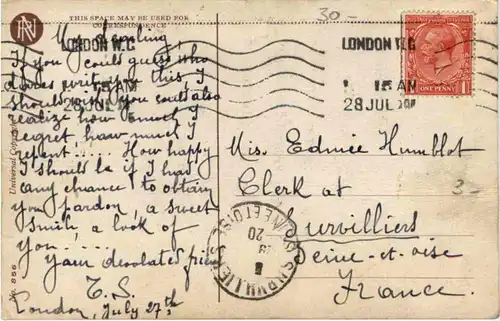 THIS SPACE MAY BE USED FOR
CORRESPONDENCE
30-
My darling,
If you could guess who
does write you this, I
should wish you could also
realize how much I
regret, how much I
repent..... How happy
I should be if I had
any chance to obtain
you pardon, a sweet
smile, a look of
you.....
Your desolated friend
T. S.
London, July 27th
LONDON W.C
1 15 AM
28 JUL 20
LONDON W.C
1 15 AM
28 JUL 20
ONE PENNY
Miss Edmée Humblot
Clerk at
Survilliers
Seine-et-oise
France.
3-
SURVILLIERS
SEINE ET OISE
20
No. 856
Universal Copyright